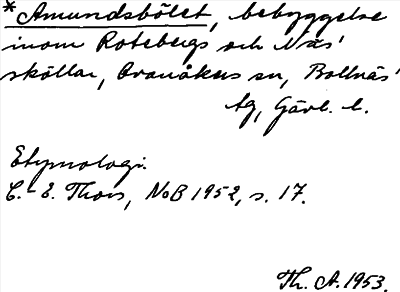 *Amundsbölet, bebyggelse
inom Rotebergs och Näs'
skällar, Ovanåkers sn, Bollnäs'
tg, Gävl. l.
Etymologi.
C.-E. Thors, NoB 1952, s. 17.
Th. A. 1953.